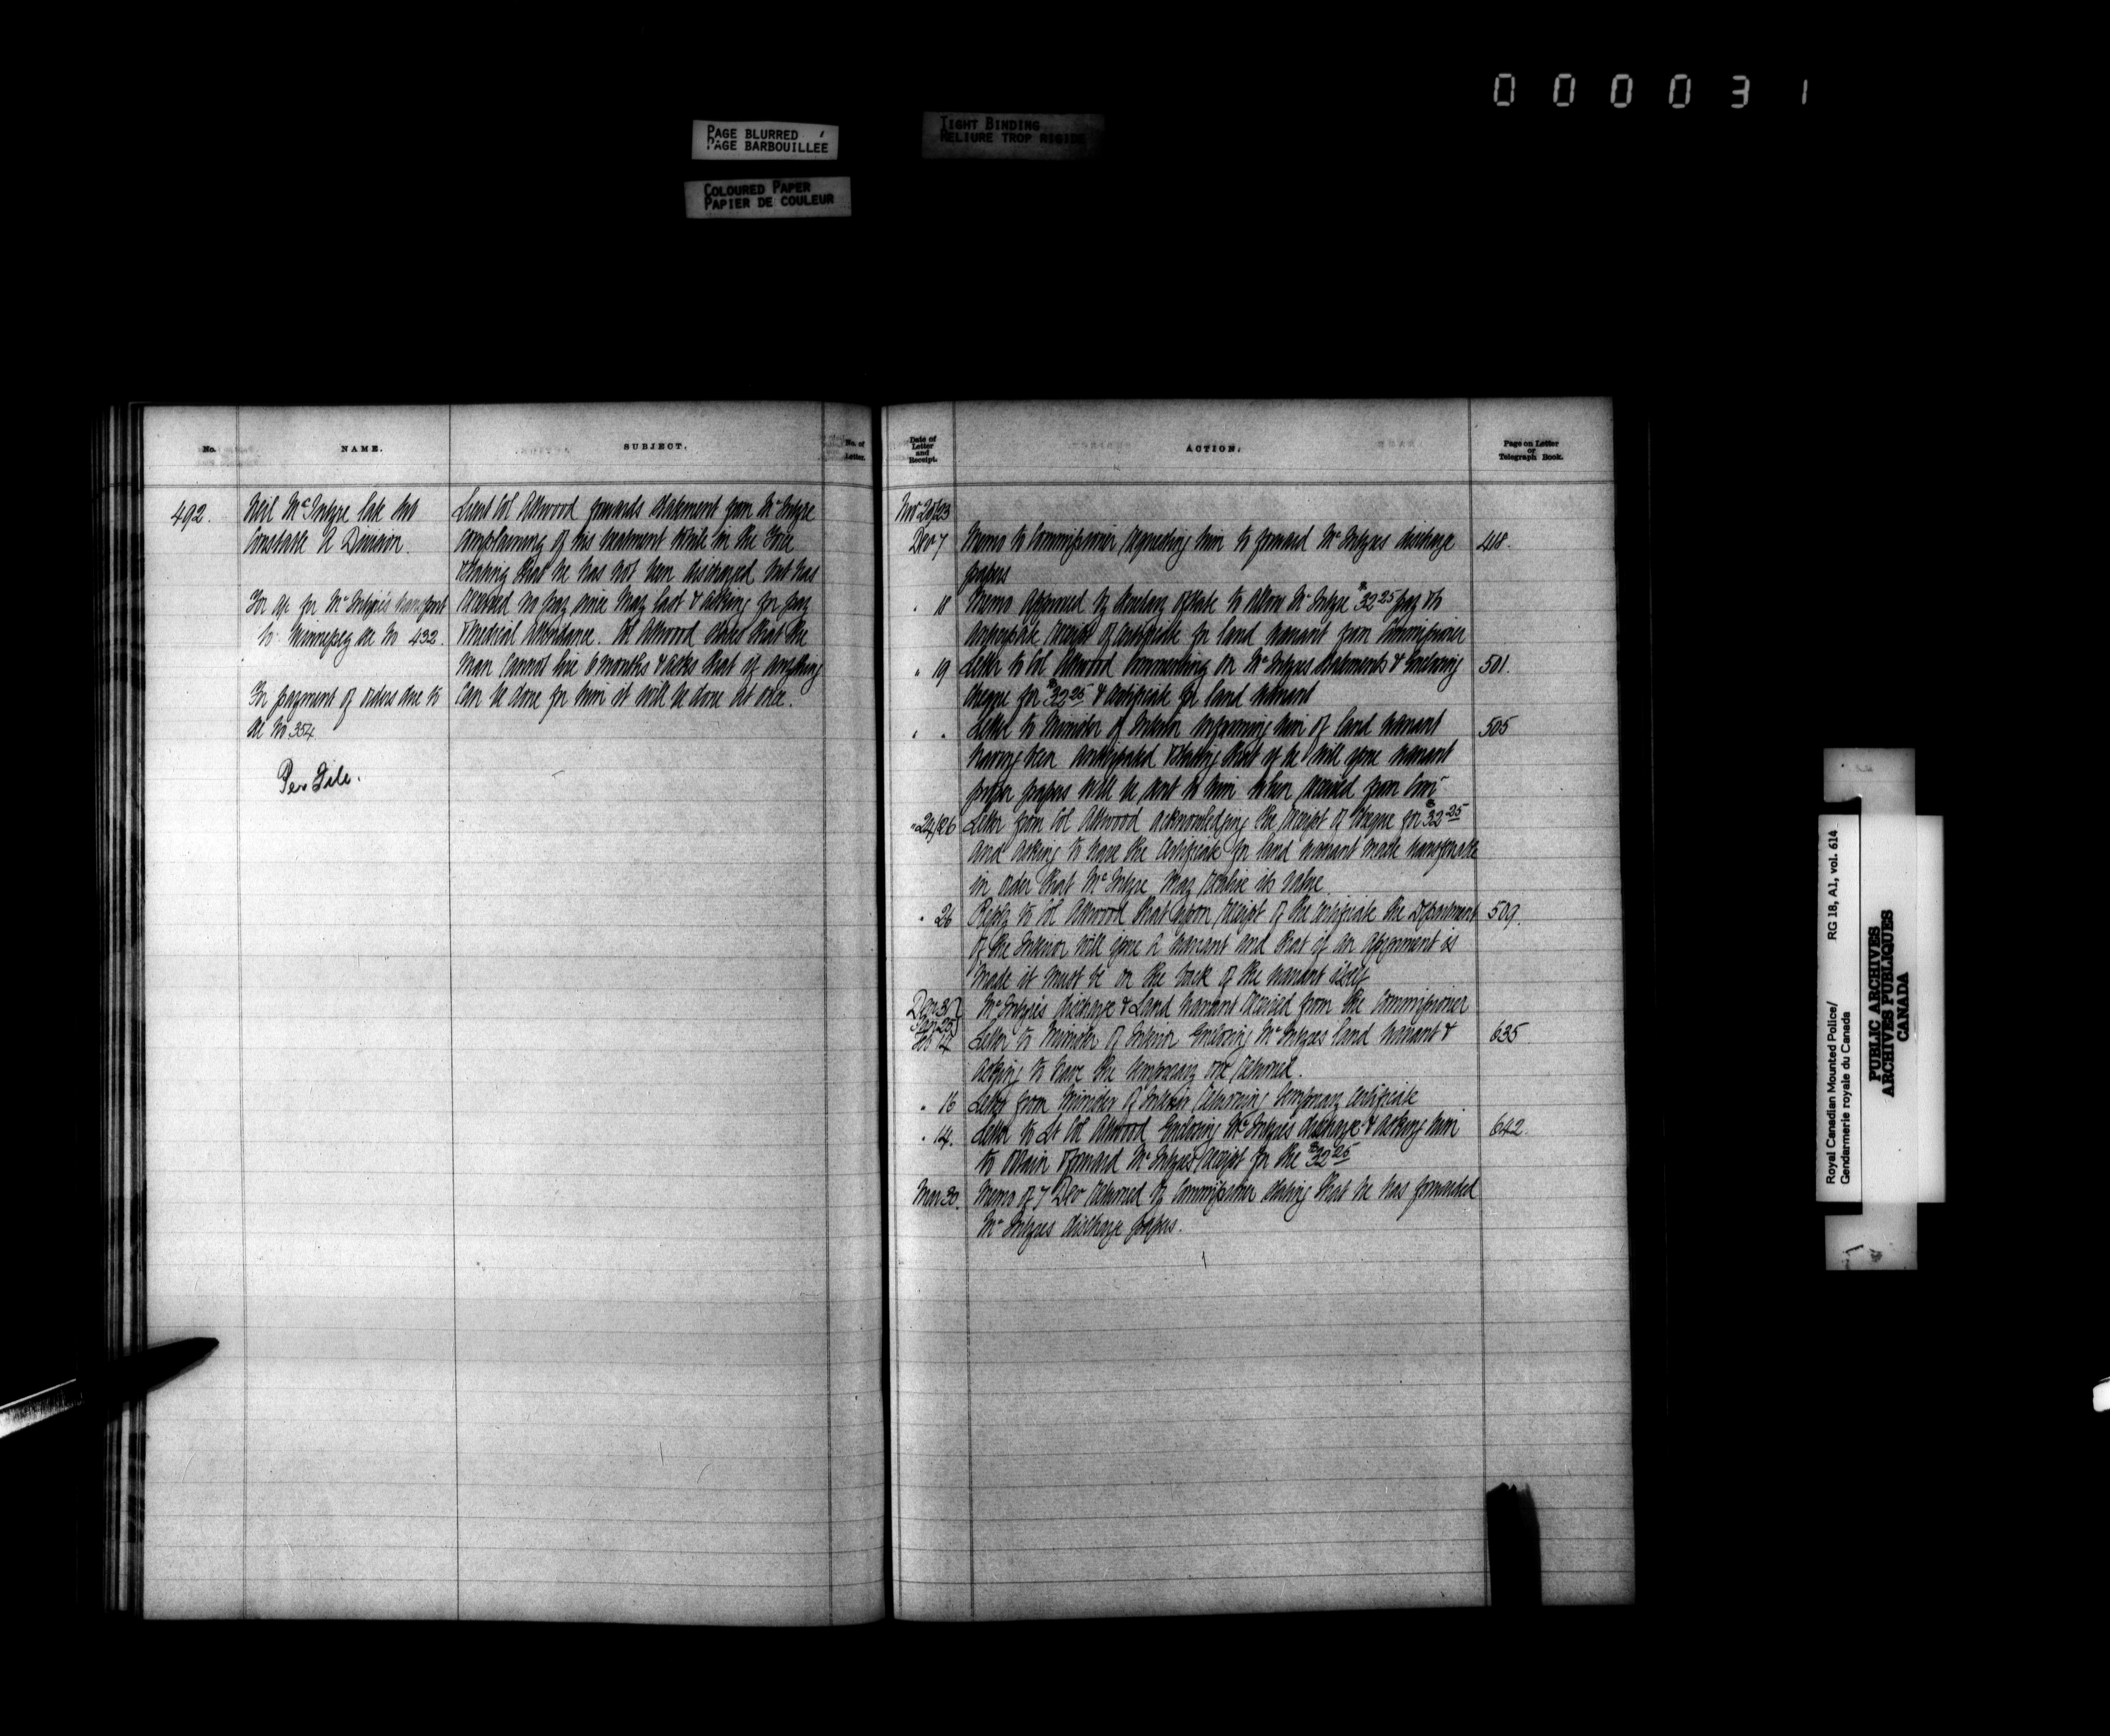 000031
PAGE BLURRED
PAGE BARBOUILLEE
TIGHT BINDING
RELIURE TROP RIGIDE
COLOURED PAPER
PAPIER DE COULEUR
No.
NAME.
SUBJECT.
No. of
Letter.
492.
Neil McIntyre late Sub
Constable A Division.
For a/c for McIntyre's transport
to Winnipeg see No 432.
For payment of orders due to
see No 354
Per File.
Lieut Col Attwood forwards statement from McIntyre
complaining of his treatment while in the Force
& Stating that he has not been discharged but has
received no pay since May last & asking for pay
& Medical attendance. Col Attwood states that the
Man cannot live 6 months & asks that if anything
can be done for him it will be done at once.
Date of
Letter
and
Receipt.
ACTION.
Page on Letter
or
Telegraph Book.
Nov 20/23
Dec 7 Memo to Commissioner requesting him to forward McIntyres discharge 418.
papers
" 18 Memo approved by Secretary of State to allow McIntyre $32.25 pay & to
anticipate receipt of certificate for land warrant from Commissioner
" 19 Letter to Col Attwood Commenting on McIntyres statements & Enclosing 501.
cheque for $32.25 & certificate for land warrant
" " Letter to Minister of Interior informing him of land warrant 505
having been anticipated & Stating that if he will issue warrant
proper papers will be sent to him when received from Comr
" 24/26 Letter from Col Attwood acknowledging the receipt of cheque for $32.25
and asking to have the certificate for land warrant made transferable
in order that McIntyre may realise its value
" 26 Reply to Col Attwood that upon receipt of the certificate the Department 509.
of the Interior will issue a warrant and that if an assignment is
made it must be on the back of the warrant itself
Dec 31
Jan 25 McIntyre's discharge & Land Warrant received from the Commissioner
Feb 14 Letter to Minister of Interior Enclosing McIntyres land warrant & 635
asking to have the temporary one returned.
" 16 Letter from Minister of Interior returning temporary certificate
" 14. Letter to Lt Col Attwood Enclosing McIntyre's discharge & asking him 642.
to obtain & forward McIntyres receipt for the $32.25
Mar 30. Memo of 7 Dec returned by Commissioner stating that he has forwarded
McIntyres discharge papers.
Royal Canadian Mounted Police/ RG 18, A1, vol. 614
Gendarmerie royale du Canada
PUBLIC ARCHIVES
ARCHIVES PUBLIQUES
CANADA